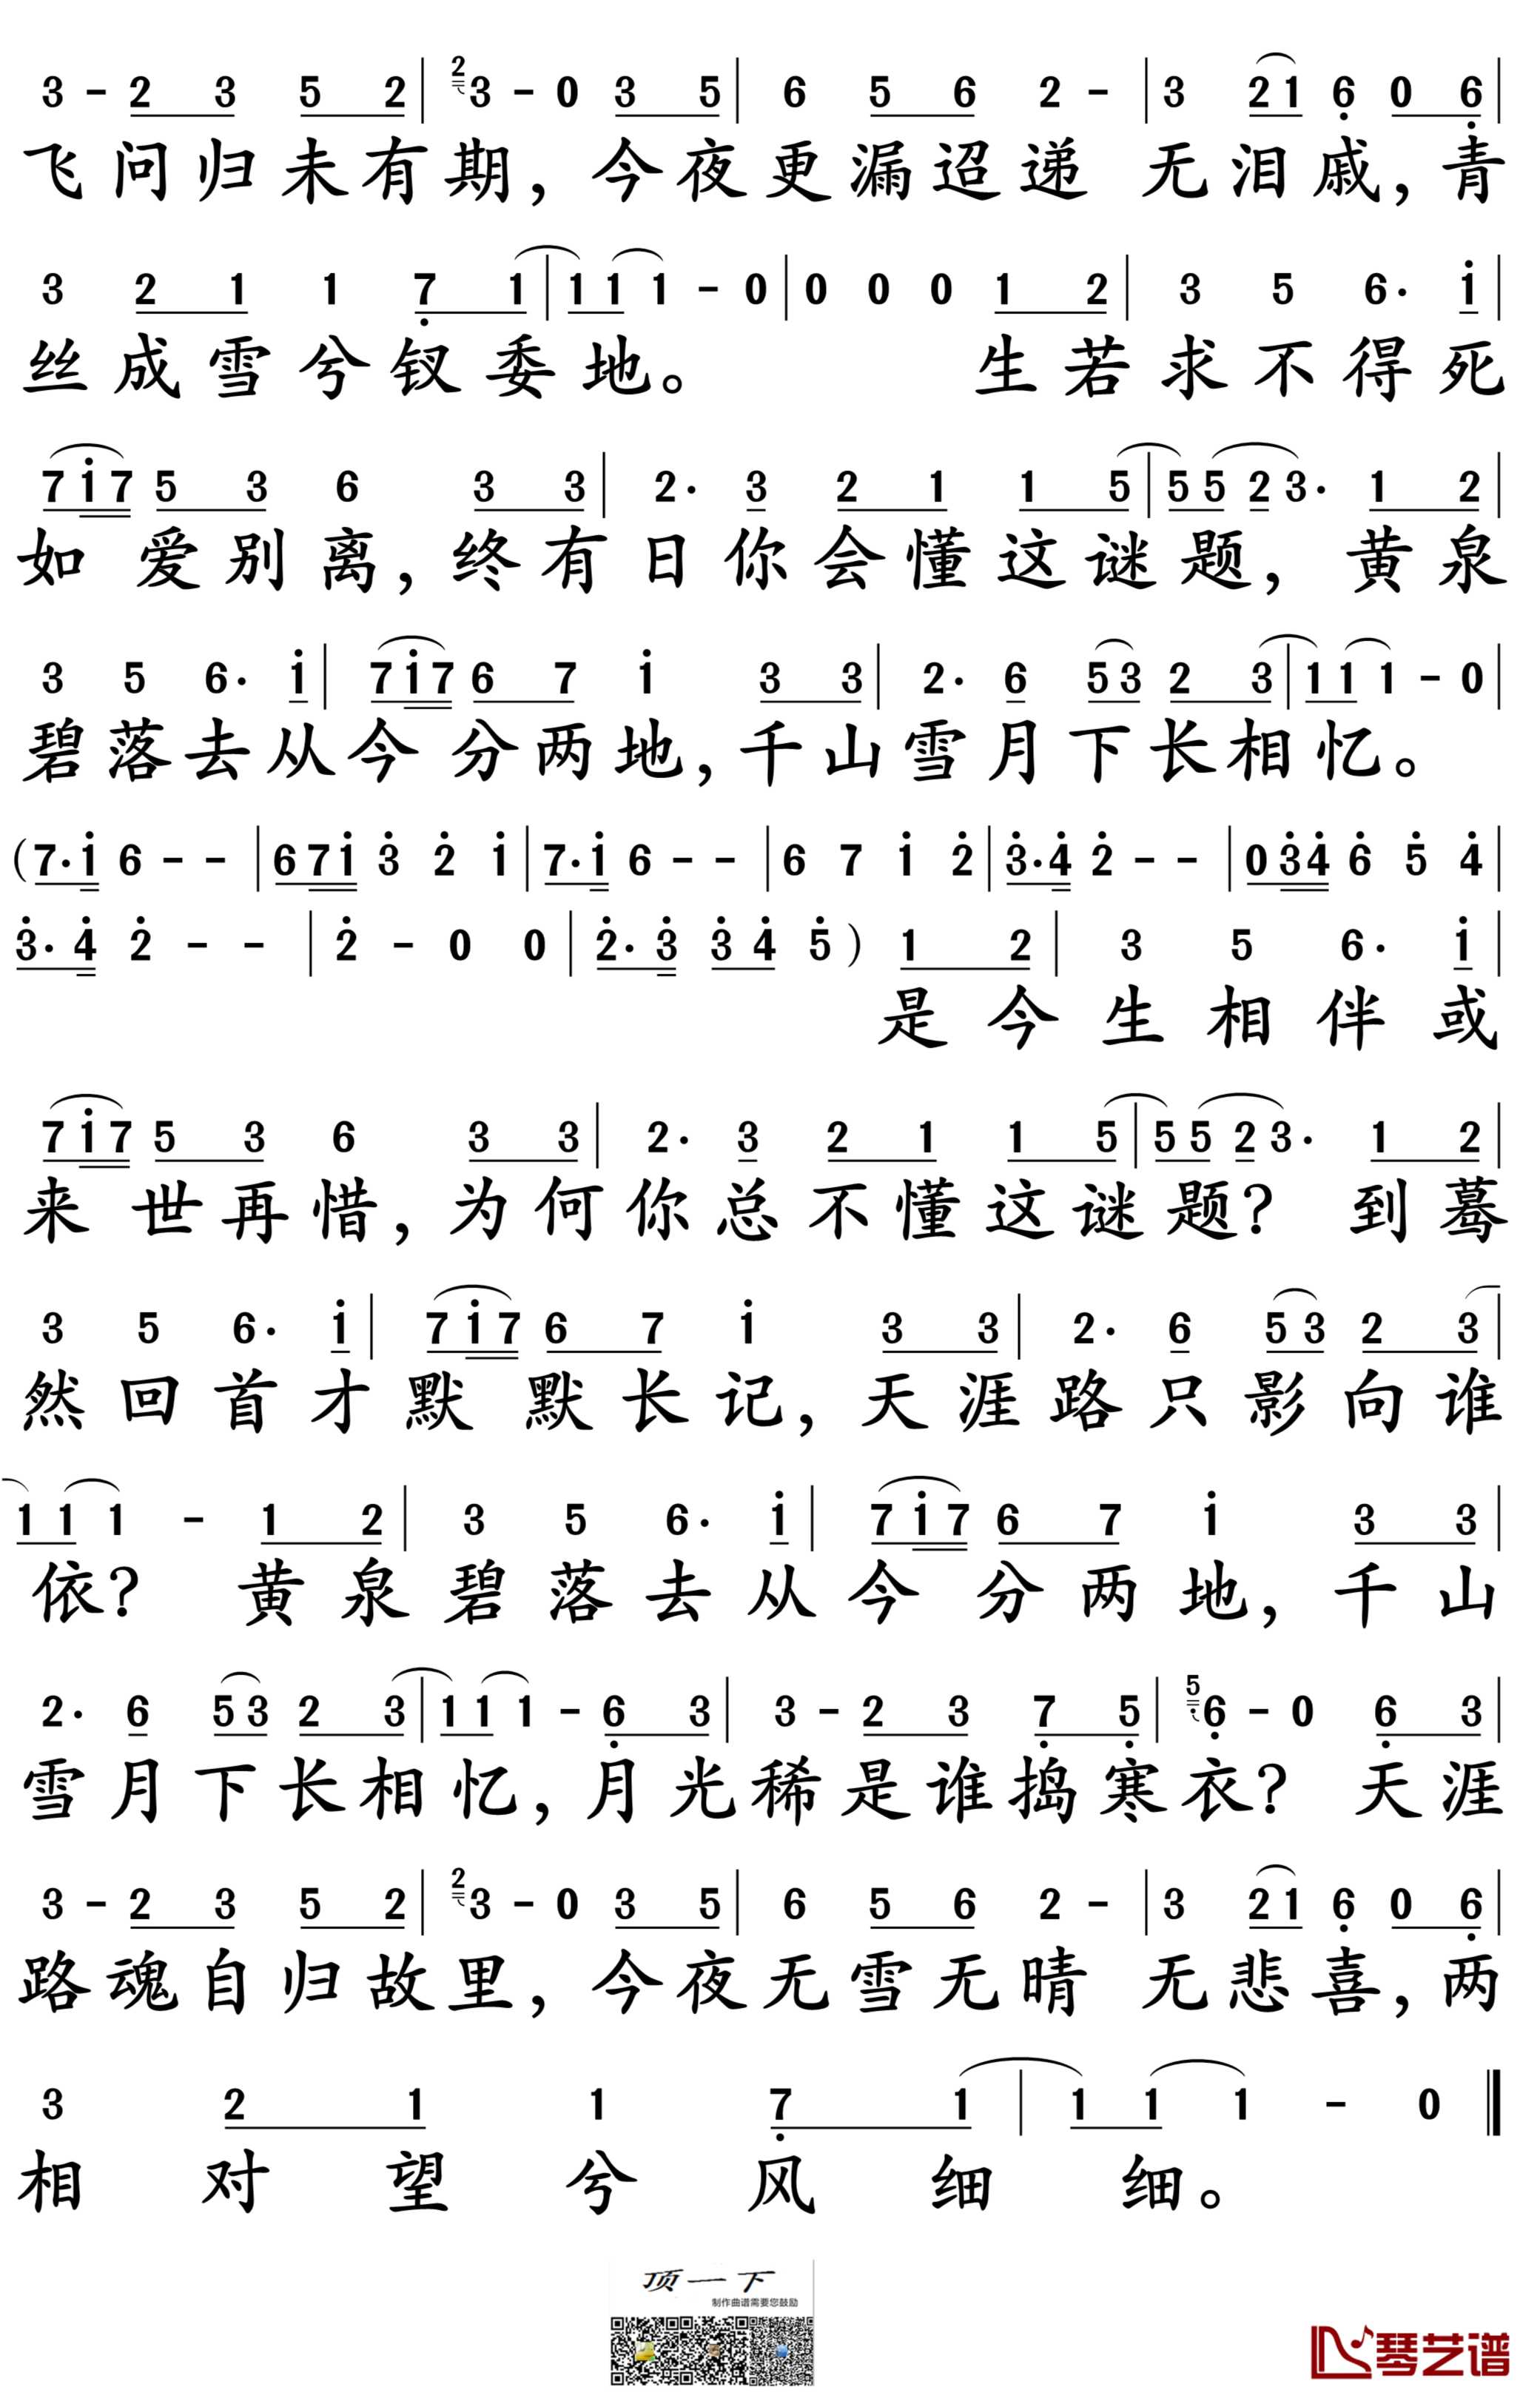 3 - 2 3 5 2 | 2 3 - 0 3 5 | 6 5 6 2 - | 3 2 1 6 0 6 |
飞问归未有期，今夜更漏迢递 无泪戚，青
3 2 1 1 7 1 | 1 1 1 - 0 | 0 0 0 1 2 | 3 5 6· i |
丝成雪兮钗委地。 生若求不得死
7 i 7 5 3 6 3 3 | 2· 3 2 1 1 5 | 5 5 2 3· 1 2 |
如爱别离，终有日你会懂这谜题，黄泉
3 5 6· i | 7 i 7 6 7 i 3 3 | 2· 6 5 3 2 3 | 1 1 1 - 0 |
碧落去从今分两地，千山雪月下长相忆。
(7· i 6 - - | 6 7 i 3 2 i | 7· i 6 - - | 6 7 i 2 | 3· 4 2 - - | 0 3 4 6 5 4 |
3· 4 2 - - | 2 - 0 0 | 2· 3 3 4 5 ) 1 2 | 3 5 6· i |
是今生相伴或
7 i 7 5 3 6 3 3 | 2· 3 2 1 1 5 | 5 5 2 3· 1 2 |
来世再惜，为何你总不懂这谜题？到蓦
3 5 6· i | 7 i 7 6 7 i 3 3 | 2· 6 5 3 2 3 |
然回首才默默长记，天涯路只影向谁
1 1 1 - 1 2 | 3 5 6· i | 7 i 7 6 7 i 3 3 |
依？黄泉碧落去从今分两地，千山
2· 6 5 3 2 3 | 1 1 1 - 6 3 | 3 - 2 3 7 5 | 5 6 - 0 6 3 |
雪月下长相忆，月光稀是谁捣寒衣？天涯
3 - 2 3 5 2 | 2 3 - 0 3 5 | 6 5 6 2 - | 3 2 1 6 0 6 |
路魂自归故里，今夜无雪无晴 无悲喜，两
3 2 1 1 7 1 | 1 1 1 - 0 ‖
相对望兮风细细。
顶一下
制作曲谱需要您鼓励
琴艺谱